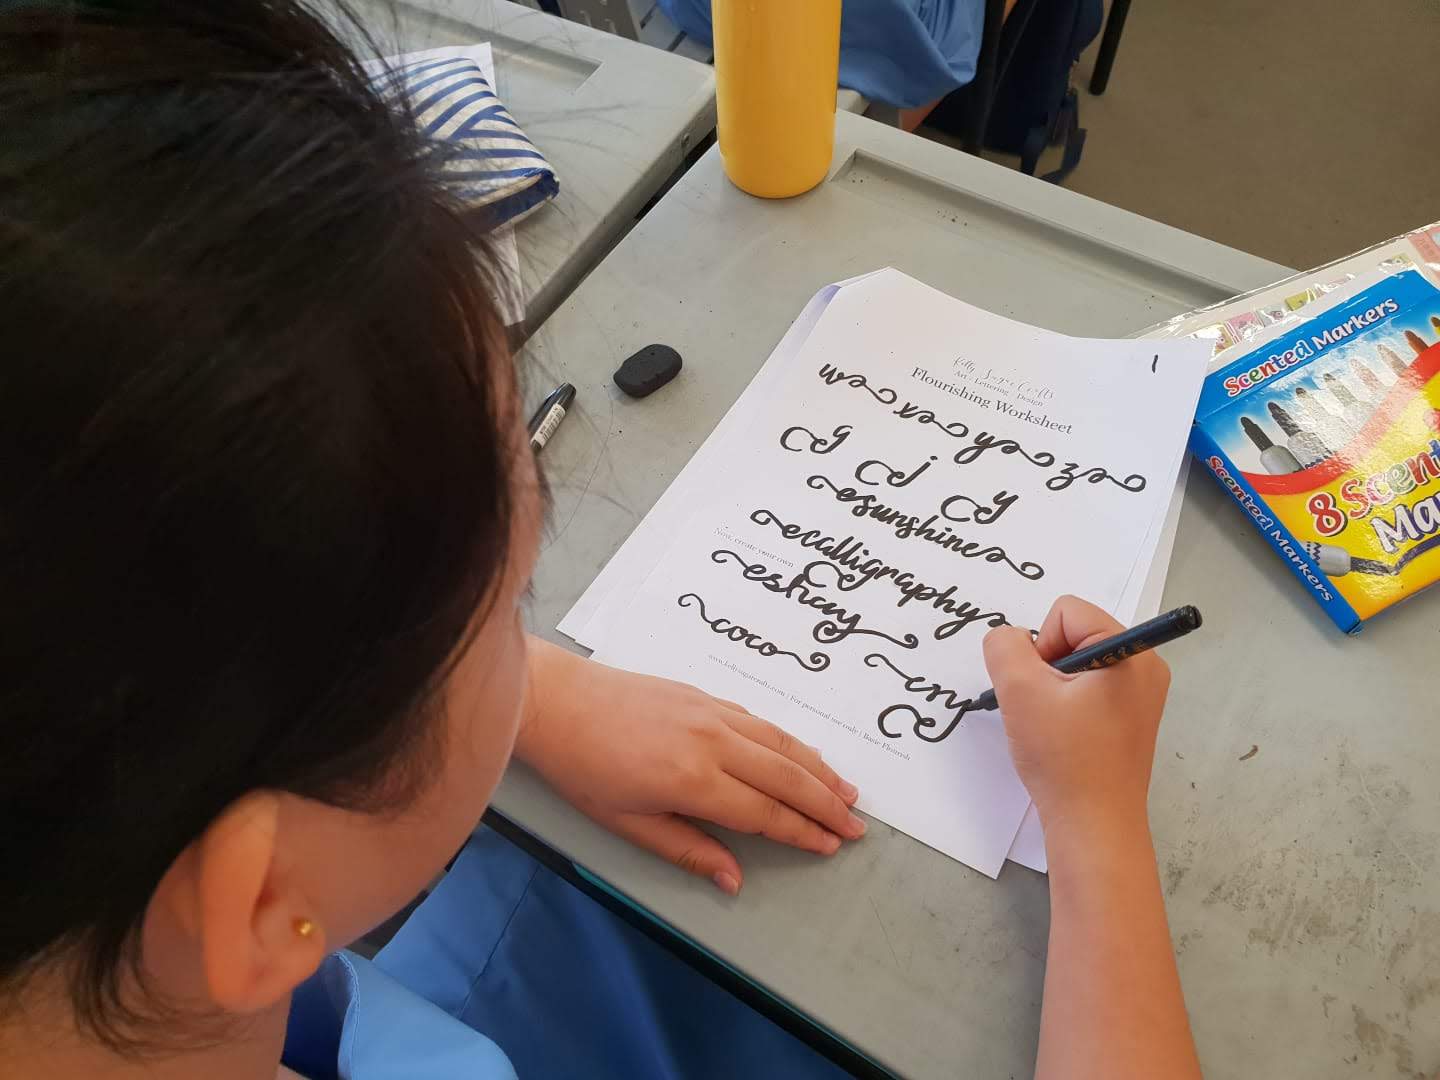 1
Kelly Sugar Crafts
Art - Lettering - Design
Flourishing Worksheet
w x y z
g j y
sunshine
calligraphy
Now, create your own
coco
cry
www.kellysugarcrafts.com | For personal use only | Basic Flourish
Scented Markers
8 Scented
Scented Markers